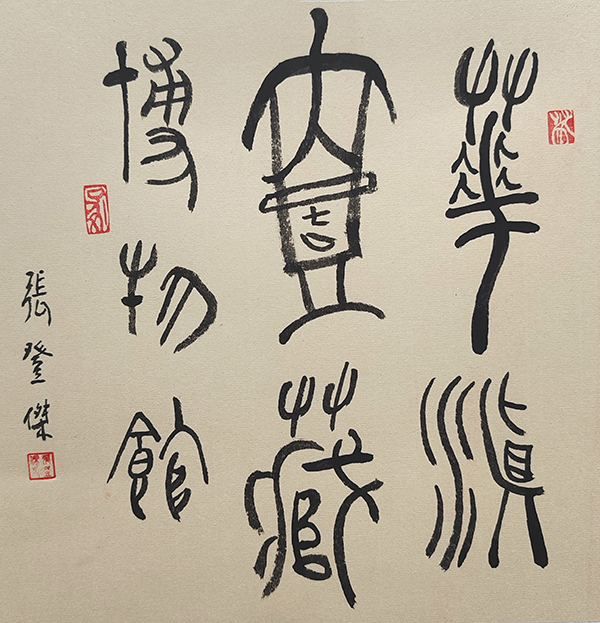 華滇
壹藏
博物館
張登傑